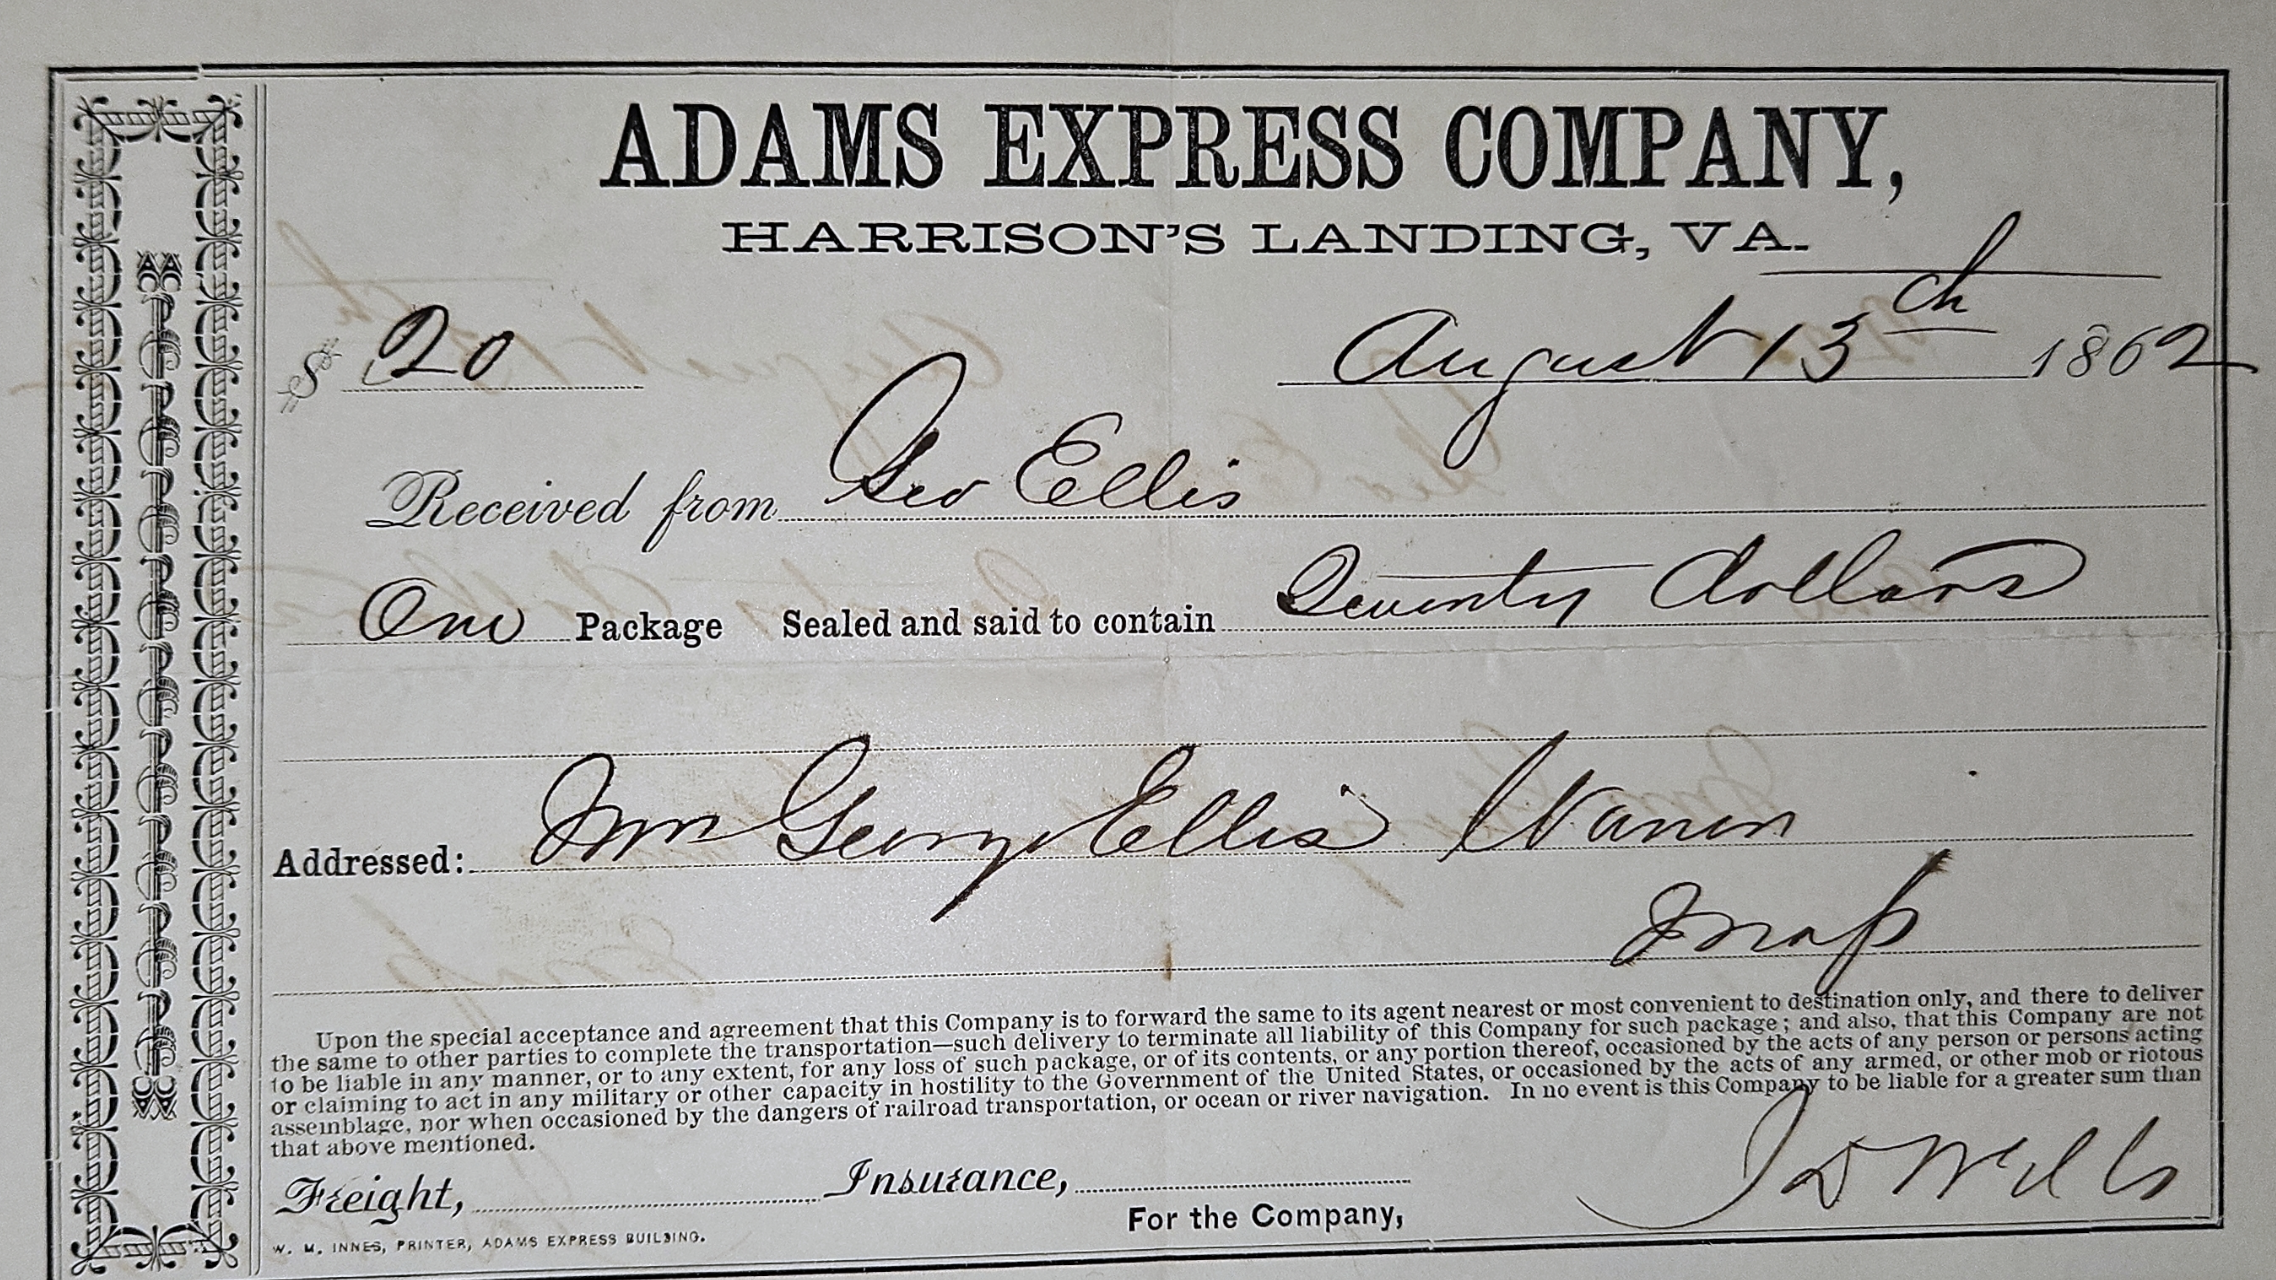 ADAMS EXPRESS COMPANY,
HARRISON'S LANDING, VA.
$ 20 August 13th 1862
Received from Geo Ellis
One Package Sealed and said to contain Seventy dollars
Addressed: Mrs George Ellis Warren
Mass
Upon the special acceptance and agreement that this Company is to forward the same to its agent nearest or most convenient to destination only, and there to deliver
the same to other parties to complete the transportation—such delivery to terminate all liability of this Company for such package; and also, that this Company are not
to be liable in any manner, or to any extent, for any loss of such package, or of its contents, or any portion thereof, occasioned by the acts of any person or persons acting
or claiming to act in any military or other capacity in hostility to the Government of the United States, or occasioned by the acts of any armed, or other mob or riotous
assemblage, nor when occasioned by the dangers of railroad transportation, or ocean or river navigation. In no event is this Company to be liable for a greater sum than
that above mentioned.
Freight, Insurance,
For the Company, J D Wells
W. M. INNES, PRINTER, ADAMS EXPRESS BUILDING.